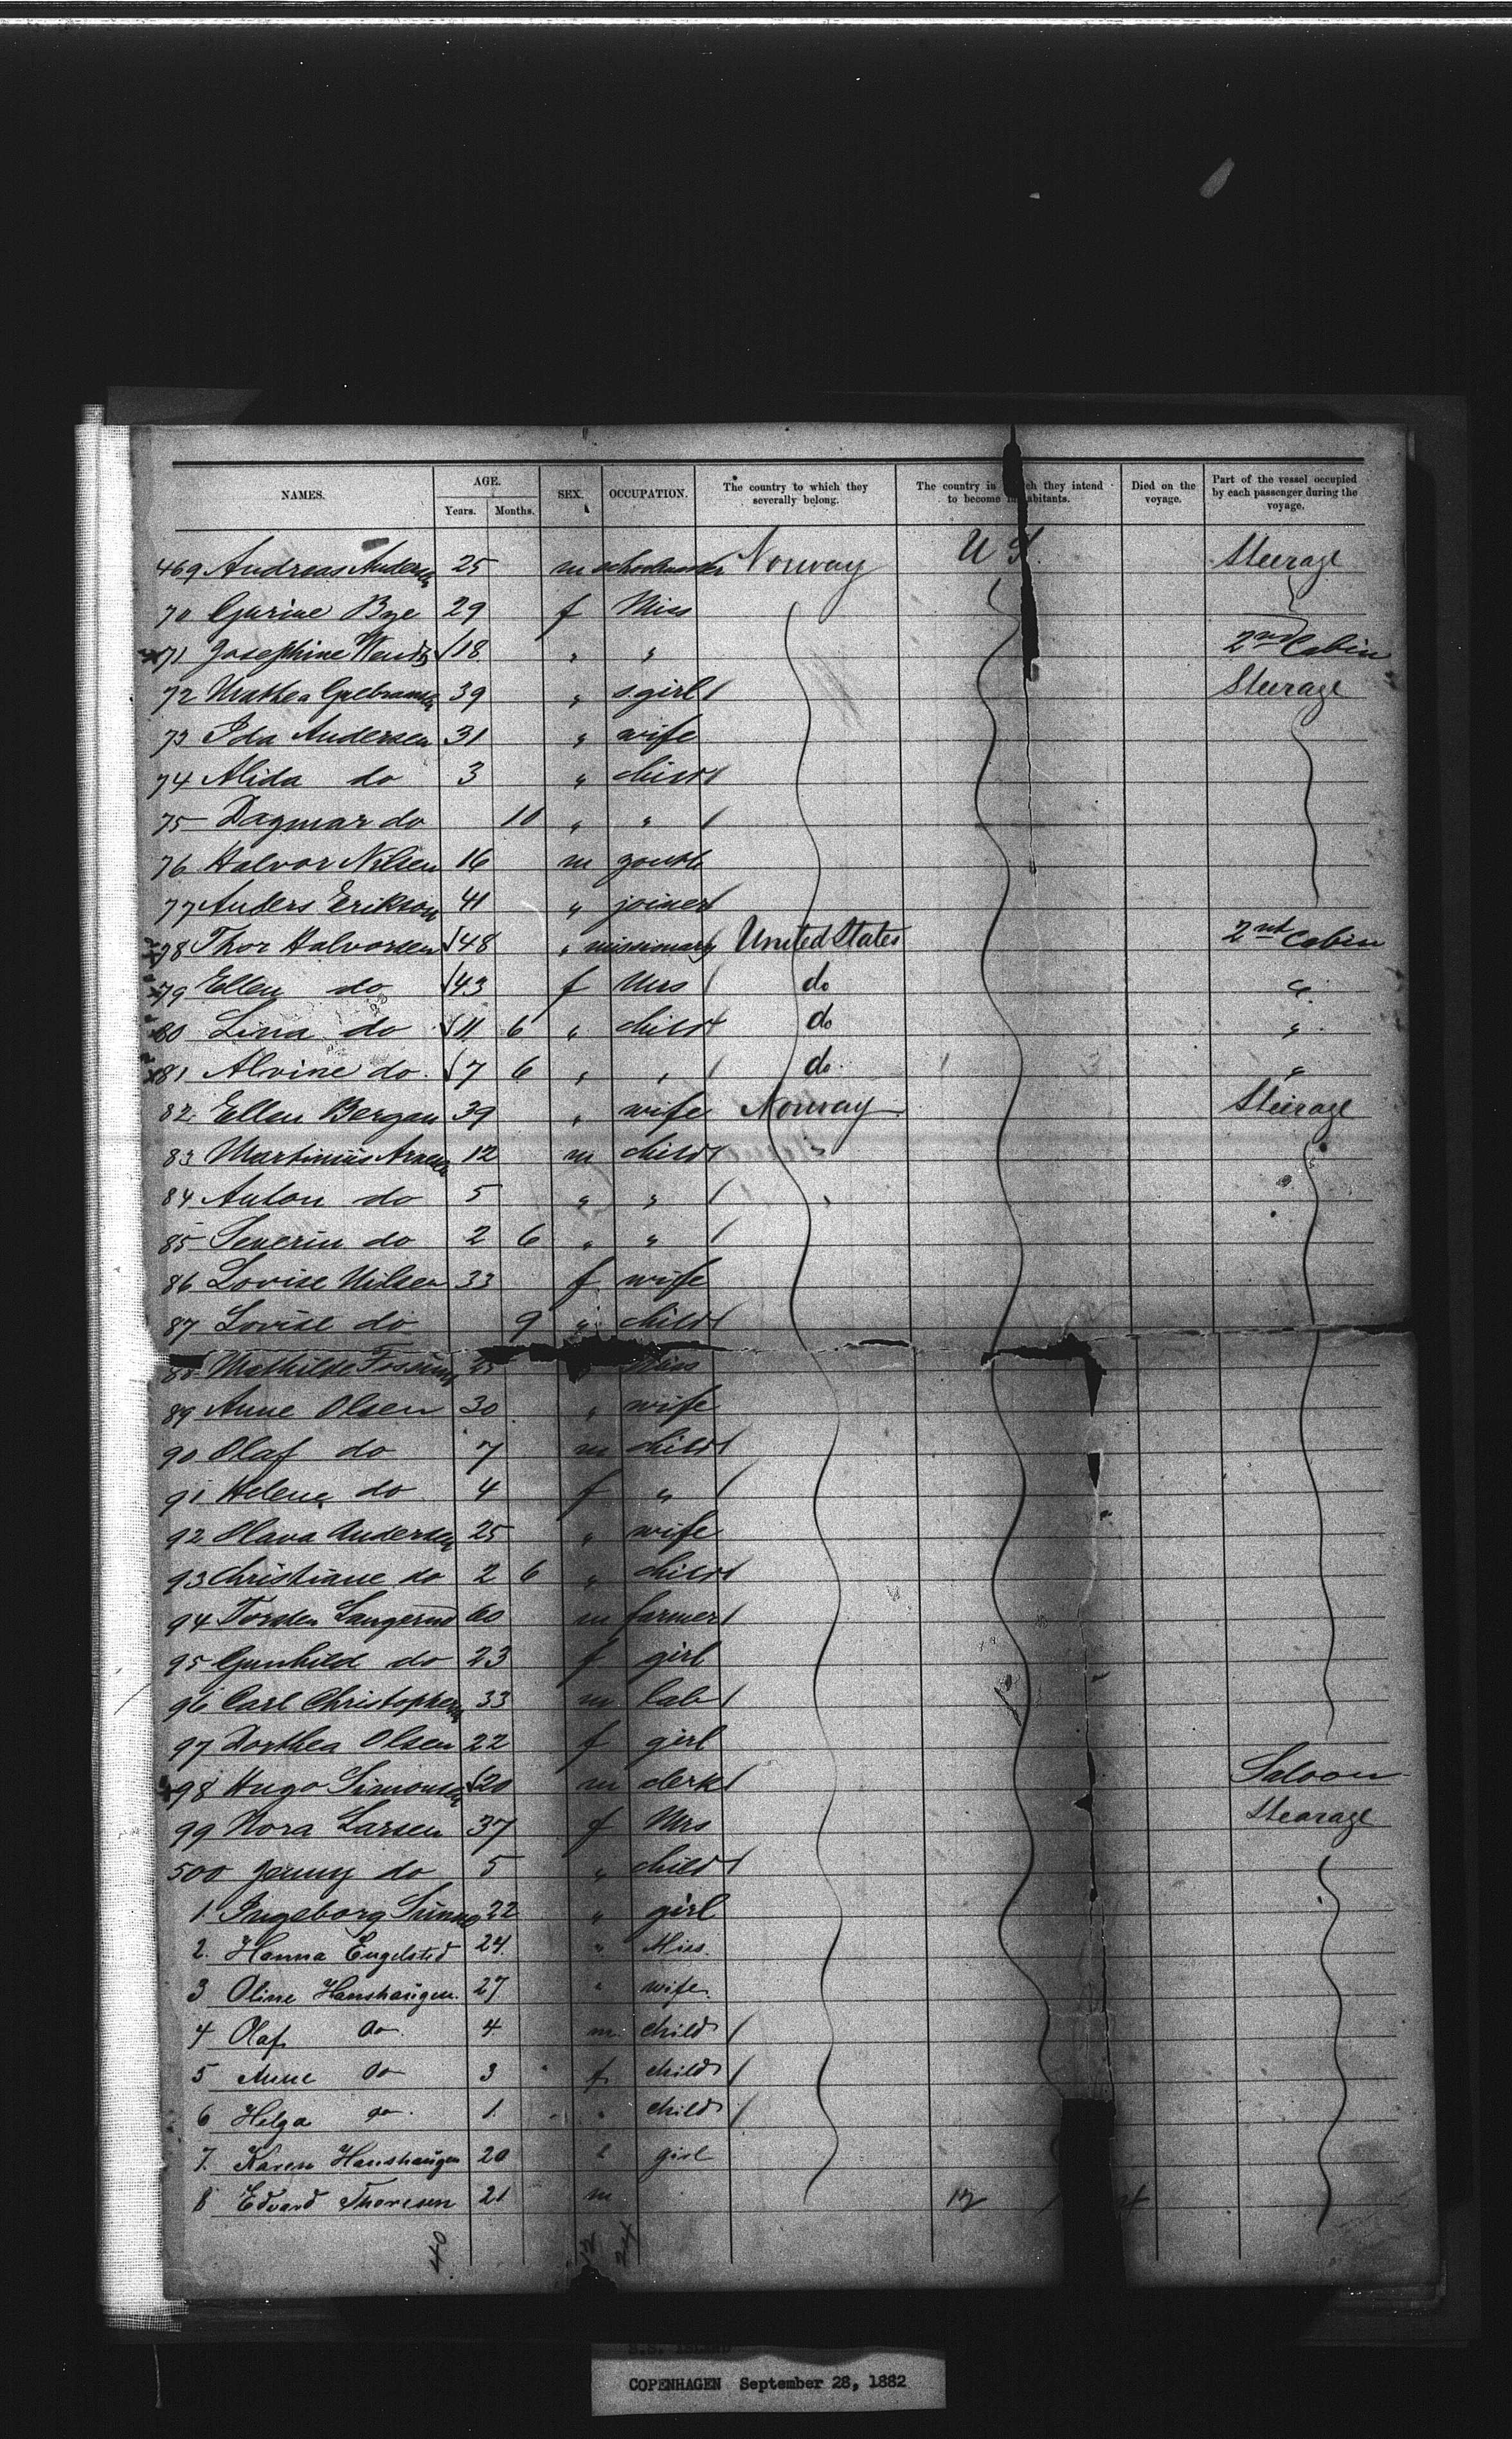 NAMES. AGE. SEX. OCCUPATION. The country to which they severally belong. The country in which they intend to become inhabitants. Died on the voyage. Part of the vessel occupied by each passenger during the voyage.
Years. Months.
469 Andreas Andersen 25 m Norway U S. Steerage
70 Gurine Bye 29 f Miss
71 Josephine 18 " " 2nd Cabin
72 Mathea 39 " s. girl Steerage
73 Ida Andersen 31 " wife
74 Alida do 3 " child
75 Dagmar do 10 " "
76 Halvor Nilsen 16 m youth
77 Anders Erikson 41 " joiner
78 Thor Halvorsen 48 " missionary United States 2nd Cabin
79 Ellen do 43 f Mrs do "
80 Lina do 11 6 " child do "
81 Alvine do. 7 6 " " do. "
82 Ellen Bergan 39 " wife Norway Steerage
83 Martinius 12 m child
84 Anton do 5 " "
85 Severin do 2 6 " "
86 Lovise Nilsen 33 f wife
87 Lovise do 9 " child
88 Mathilde Miss
89 Anne Olsen 30 " wife
90 Olaf do 7 m child
91 Helene do 4 f "
92 Olava Andersen 25 " wife
93 Christiane do 2 6 " child
94 60 m farmer
95 Gunhild do 23 f girl
96 Carl Christophersen 33 m lab
97 Dorthea Olsen 22 f girl
98 Hugo Simonsen 20 m clerk Saloon
99 Nora Larsen 37 f Mrs Stearage
500 Jenny do 5 " child
1. Ingeborg 22 " girl
2. Hanna Engelsted 24. " Miss.
3 Oline Hanshaugen. 27 " wife.
4 Olaf do. 4 m child
5 Anne do 3 f. child
6 Helga do. 1. " child
7. Karen Hanshaugen 20 " girl
8 Edvard Thoresen 21 m 12
40 24
COPENHAGEN September 28, 1882